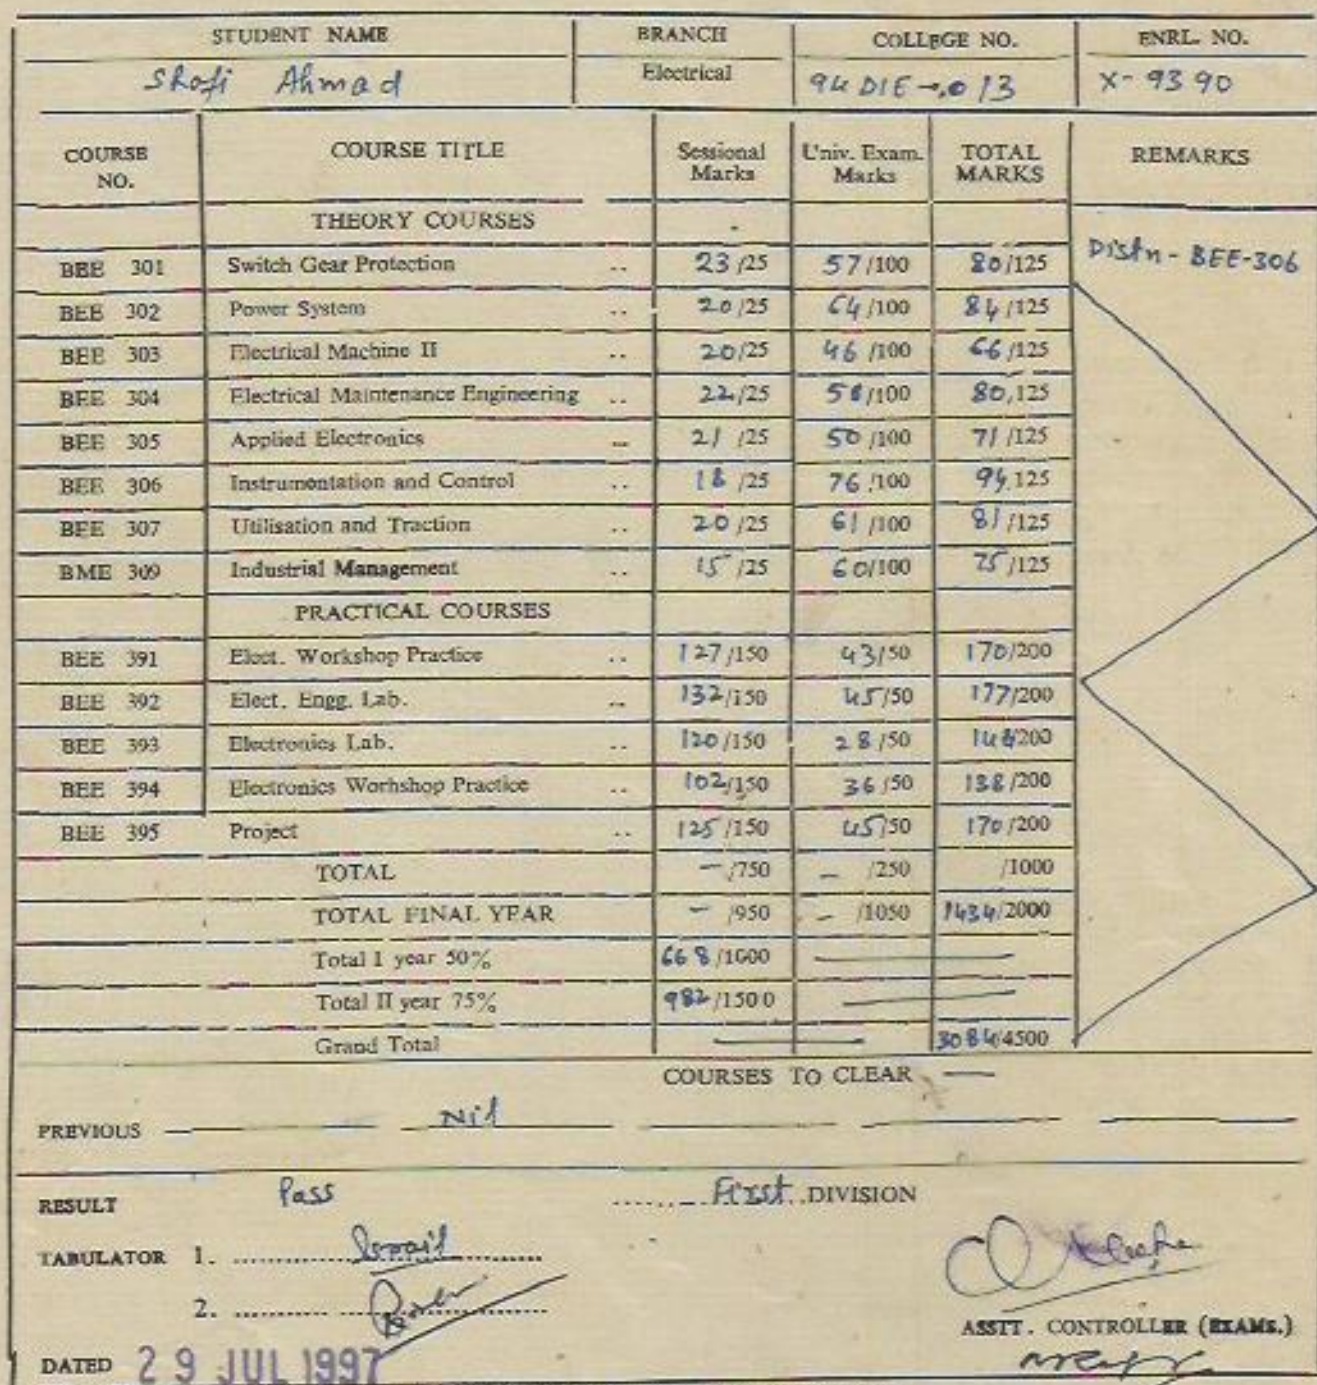 STUDENT NAME BRANCH COLLEGE NO. ENRL. NO.
Shafi Ahmad Electrical 94 DIE-013 X-9390
COURSE NO. COURSE TITLE Sessional Marks Univ. Exam. Marks TOTAL MARKS REMARKS
THEORY COURSES
BEE 301 Switch Gear Protection .. 23/25 57/100 80/125 Distn - BEE-306
BEE 302 Power System .. 20/25 64/100 84/125
BEE 303 Electrical Machine II .. 20/25 46/100 66/125
BEE 304 Electrical Maintenance Engineering .. 22/25 58/100 80,125
BEE 305 Applied Electronics .. 21/25 50/100 71/125
BEE 306 Instrumentation and Control .. 18/25 76/100 94,125
BEE 307 Utilisation and Traction .. 20/25 61/100 81/125
BME 309 Industrial Management .. 15/25 60/100 75/125
PRACTICAL COURSES
BEE 391 Elect. Workshop Practice .. 127/150 43/50 170/200
BEE 392 Elect. Engg. Lab. .. 132/150 45/50 177/200
BEE 393 Electronics Lab. .. 120/150 28/50 148/200
BEE 394 Electronics Worhshop Practice .. 102/150 36/50 138/200
BEE 395 Project .. 125/150 45/50 170/200
TOTAL - /750 - /250 /1000
TOTAL FINAL YEAR - /950 - /1050 1434/2000
Total I year 50% 668/1000
Total II year 75% 982/1500
Grand Total 3084/4500
COURSES TO CLEAR —
PREVIOUS — Nil
RESULT Pass First DIVISION
TABULATOR 1. Ismail
2.
ASSTT. CONTROLLER (EXAMS.)
DATED 29 JUL 1997